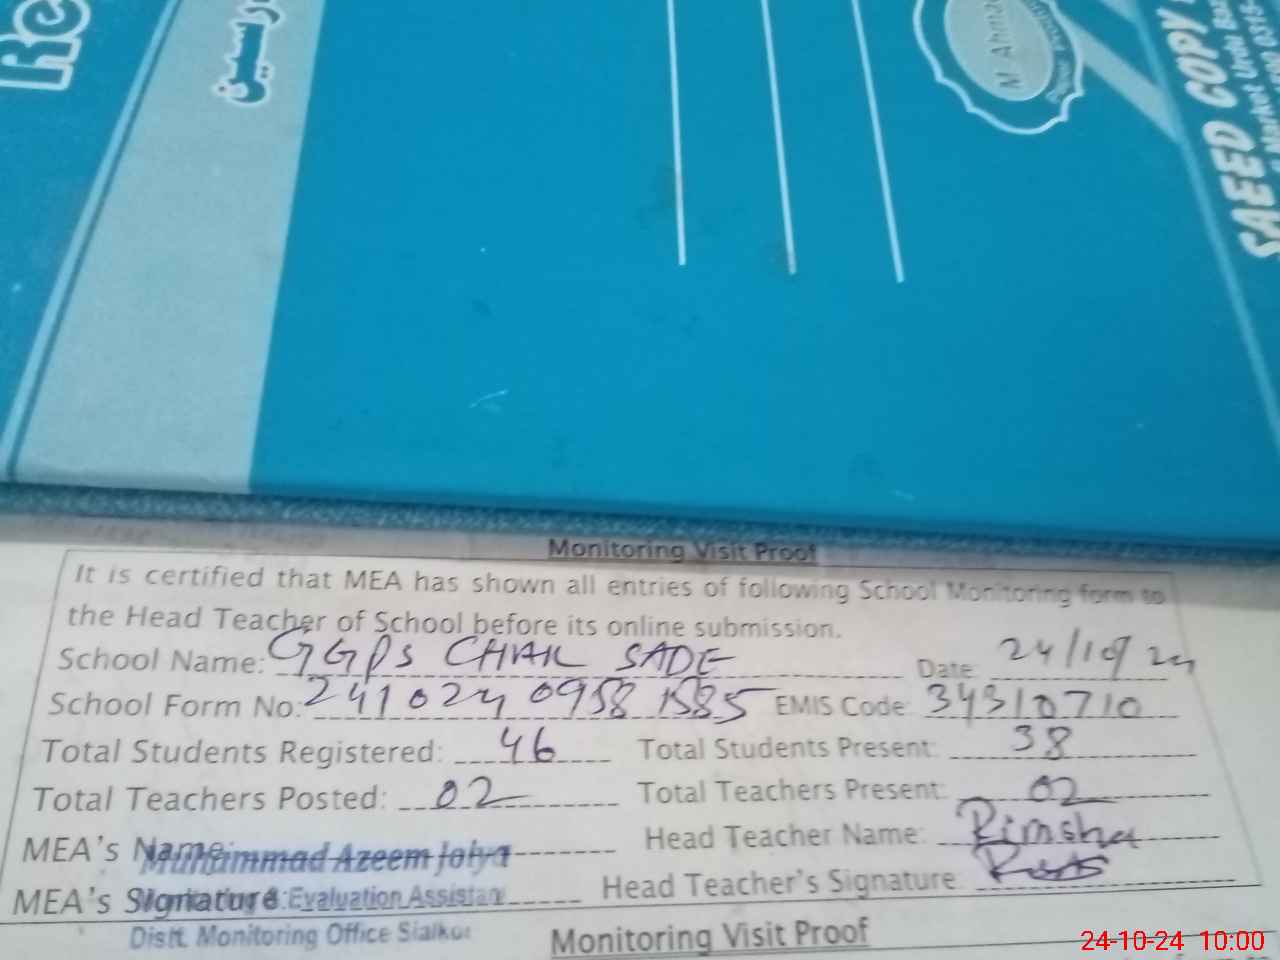 Re
M Ahmad
SAEED COPY
Market Urdu Baz
Monitoring Visit Proof
It is certified that MEA has shown all entries of following School Monitoring form to
the Head Teacher of School before its online submission.
School Name: GGPS CHAK SADE Date: 24/10/24
School Form No: 241024 0958 1585 EMIS Code: 34310710
Total Students Registered: 46 Total Students Present: 38
Total Teachers Posted: 02 Total Teachers Present: 02
MEA's Name: Muhammad Azeem Joiya Head Teacher Name: Rimsha
MEA's Signature: Monitoring & Evaluation Assistant Head Teacher's Signature
Distt. Monitoring Office Sialkot
Monitoring Visit Proof
24-10-24 10:00